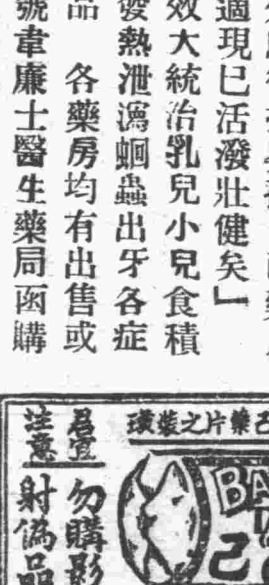 適現已活潑壯健矣」
效大統治乳兒小兒食積
發熱泄瀉蛔蟲出牙各症
品 各藥房均有出售或
號韋廉士醫生藥局函購
己藥片之裝璜
BA
己
君宜
注意
勿購影
射僞品